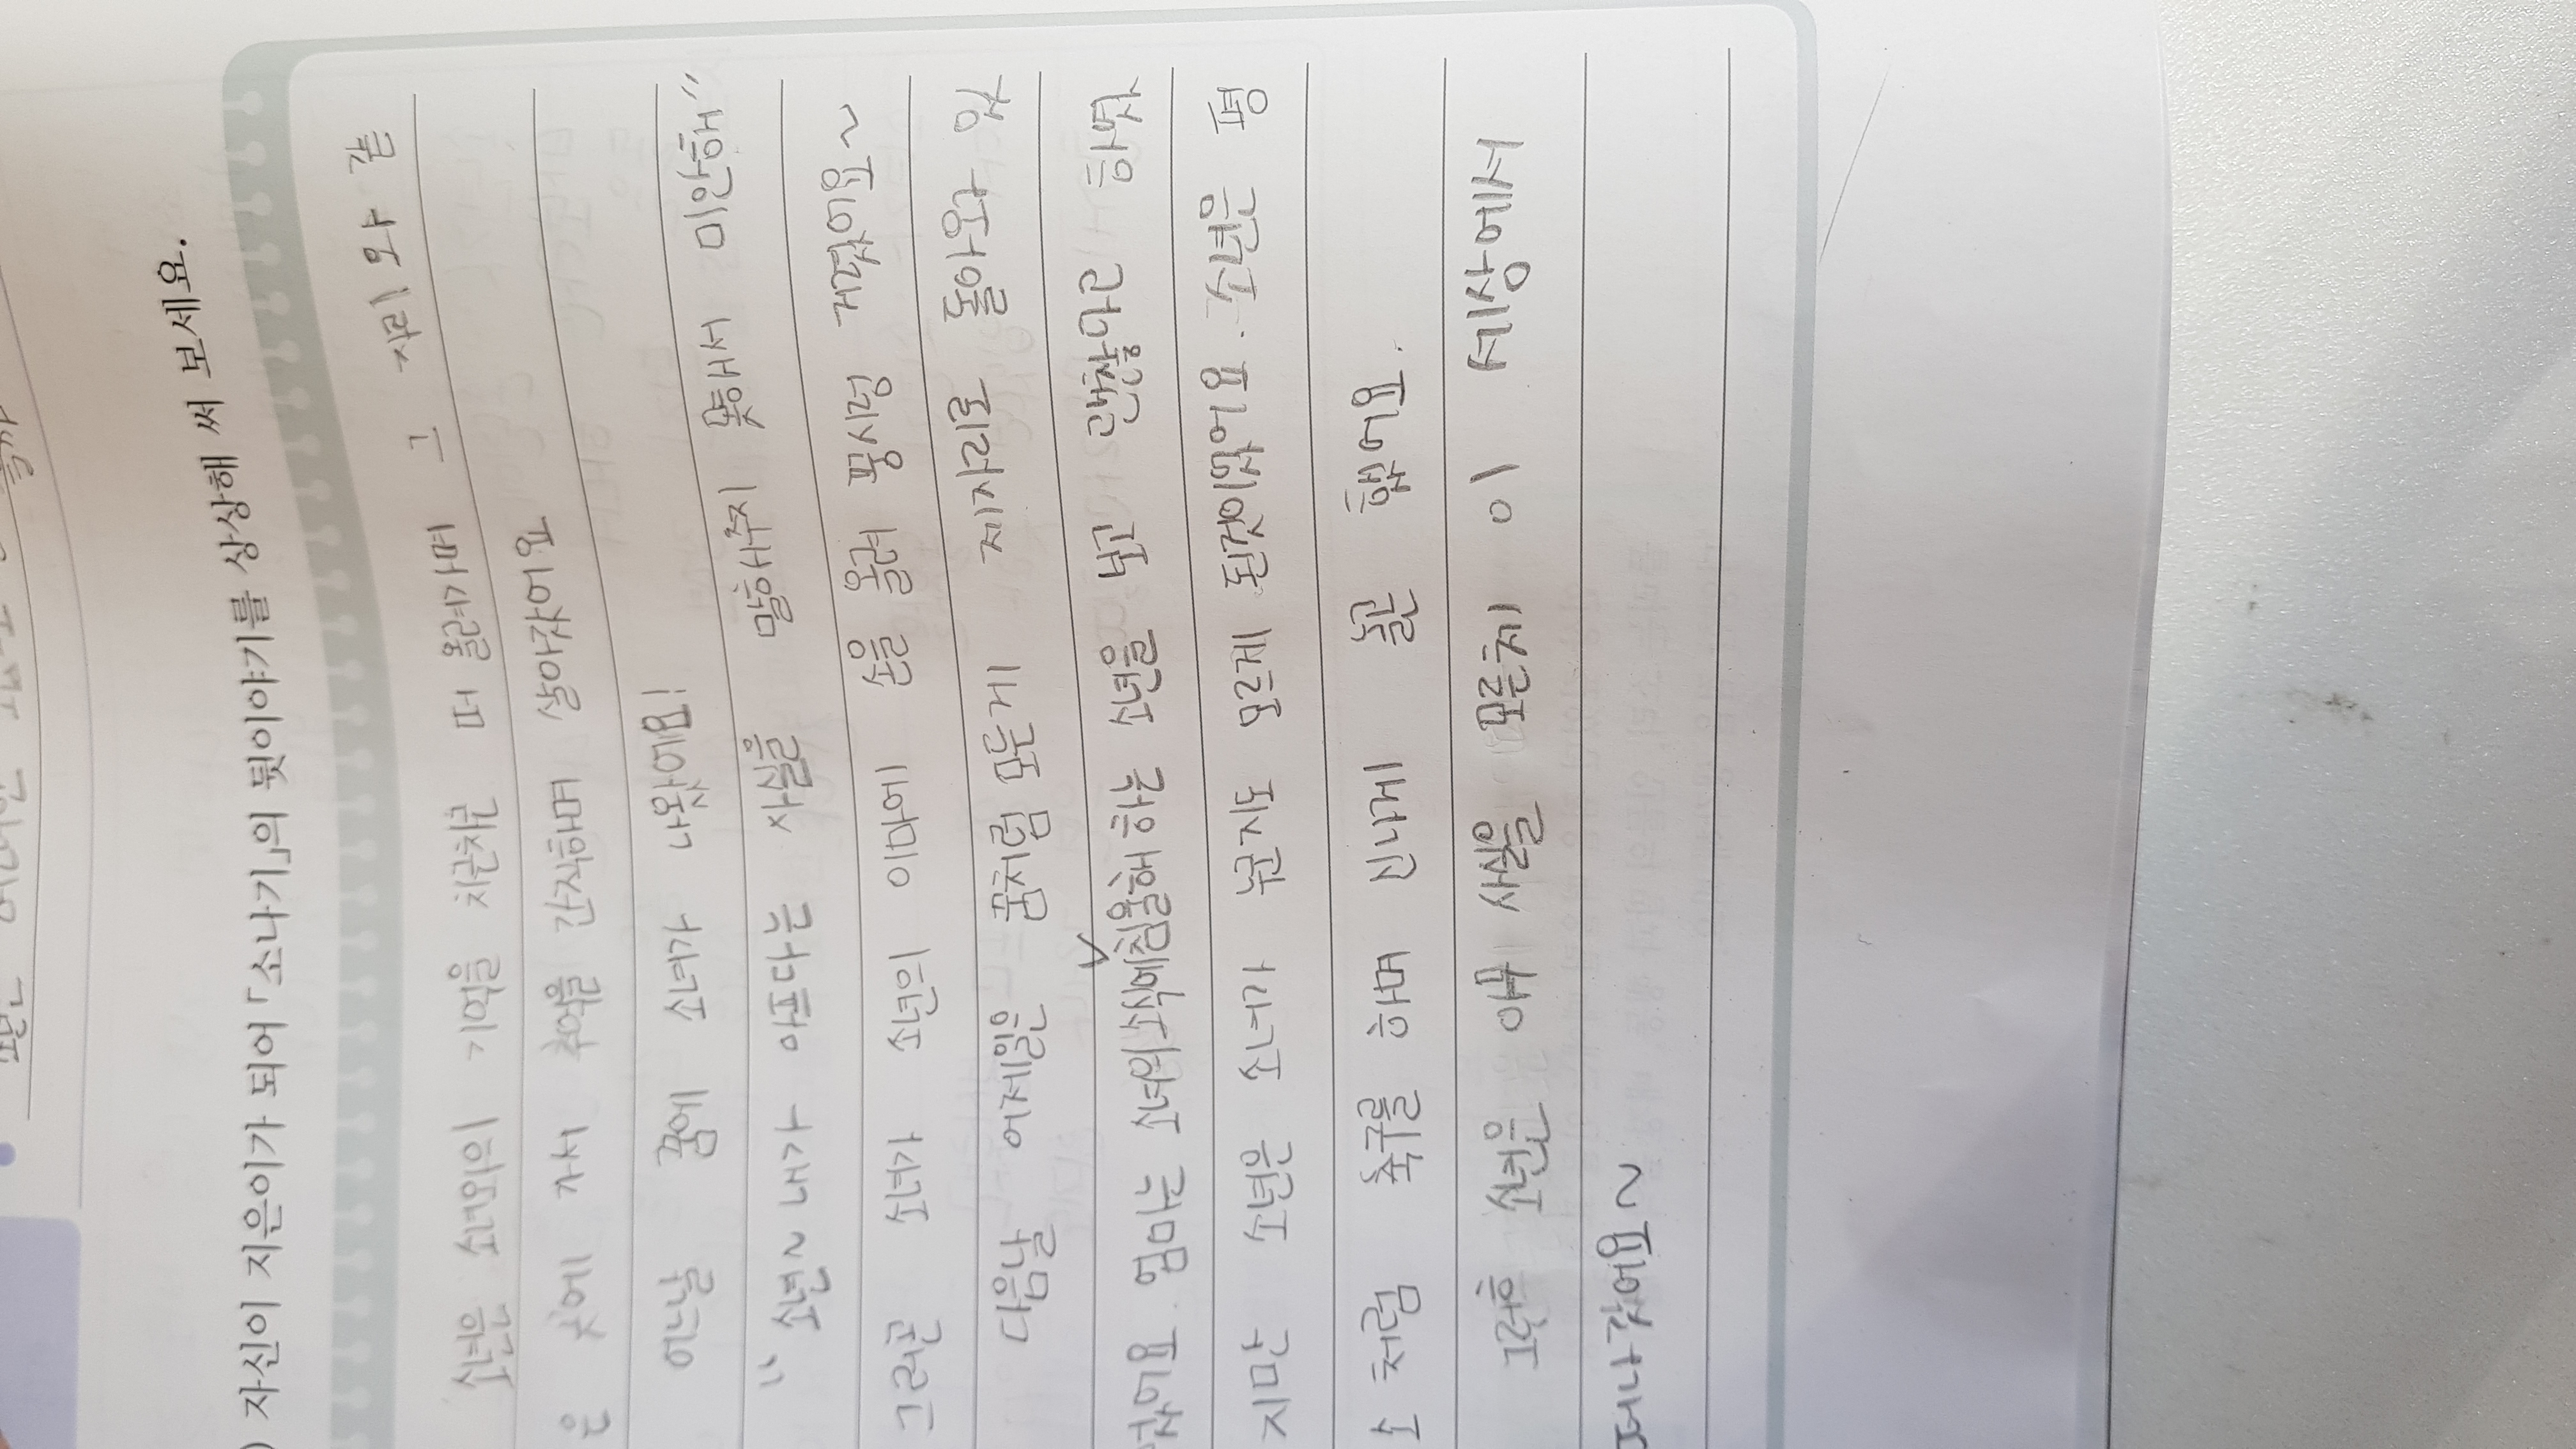 자신이 지은이가 되어 「소나기」의 뒷이야기를 상상해 써 보세요.
소년은 소녀와의 기억을 치근차근 떠 올려가며 그 자리와 같
은 곳에 가서 추억을 간직하며 살아갔어요
어느날 꿈에 소녀가 나왔어요!
"소년~ 내가 아프다는 사실을 말해주지 못해서 미안해"
그러곤 소녀가 소년의 이마에 손을 올려 풍시렁 거렸어요~
다음날 어제일은 꿈처럼 모든게 제자리로 돌아왔
었어요. 엄마는 소녀의소식에침울해 하는 소년을 보고 괜찮냐라 했
지만 소년은 소녀가 누군지도 모르게 된것이었어요. 소년은 평
소 처럼 축구를 하며 신나게 놀곤 했어요.
그 후 소년은 아무 사실을 모른체 이 세상에서
떠나갔어요~